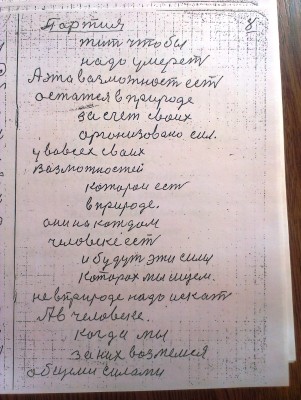 Партия 8
жит чтобы
надо умерет
А эта възможност ест
остатся в природе
за счет своих
организовано сил.
у во всех своих
возможностей
которои ест
в природе.
они на каждом
человеке ест
и будут эти сили
которах мы ищем.
не в природе надо искат
А в человеке.
когда мы
за них возмемся
общими силами